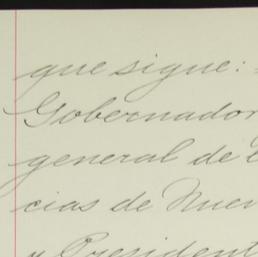 que sigue:
Gobernador
general de
cias de Nuev
y President